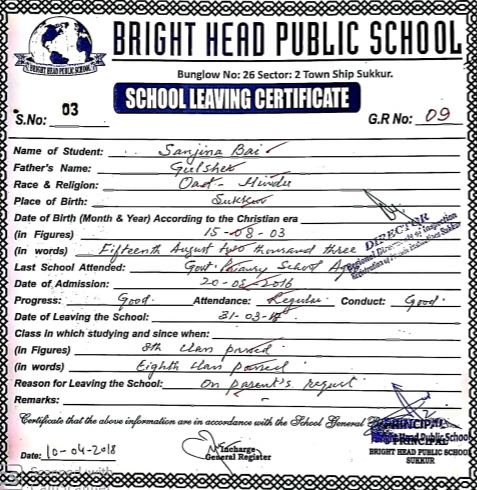 BRIGHT HEAD PUBLIC SCHOOL
BRIGHT HEAD PUBLIC SCHOOL
Bunglow No: 26 Sector: 2 Town Ship Sukkur.
SCHOOL LEAVING CERTIFICATE
S.No: 03 G.R No: 09
Name of Student: Sanjina Bai
Father's Name: Gulsher
Race & Religion: Oad - Hindu
Place of Birth: Sukkur
Date of Birth (Month & Year) According to the Christian era
(in Figures) 15-08-03
(in words) Fifteenth August two thousand three
DIRECTOR
Last School Attended: Govt Primary School
Date of Admission: 20-08-2016
Progress: Good. Attendance: Regular Conduct: Good.
Date of Leaving the School: 31-03-18
Class in which studying and since when:
(in Figures) 8th class passed
(in words) Eighth class passed
Reason for Leaving the School: On parent's request
Remarks: -
Certificate that the above information are in accordance with the School General
PRINCIPAL
Bright Head Public School
PRINCIPAL
BRIGHT HEAD PUBLIC SCHOOL
SUKKUR
Incharge
General Register
Date: 10-04-2018
Scanned with